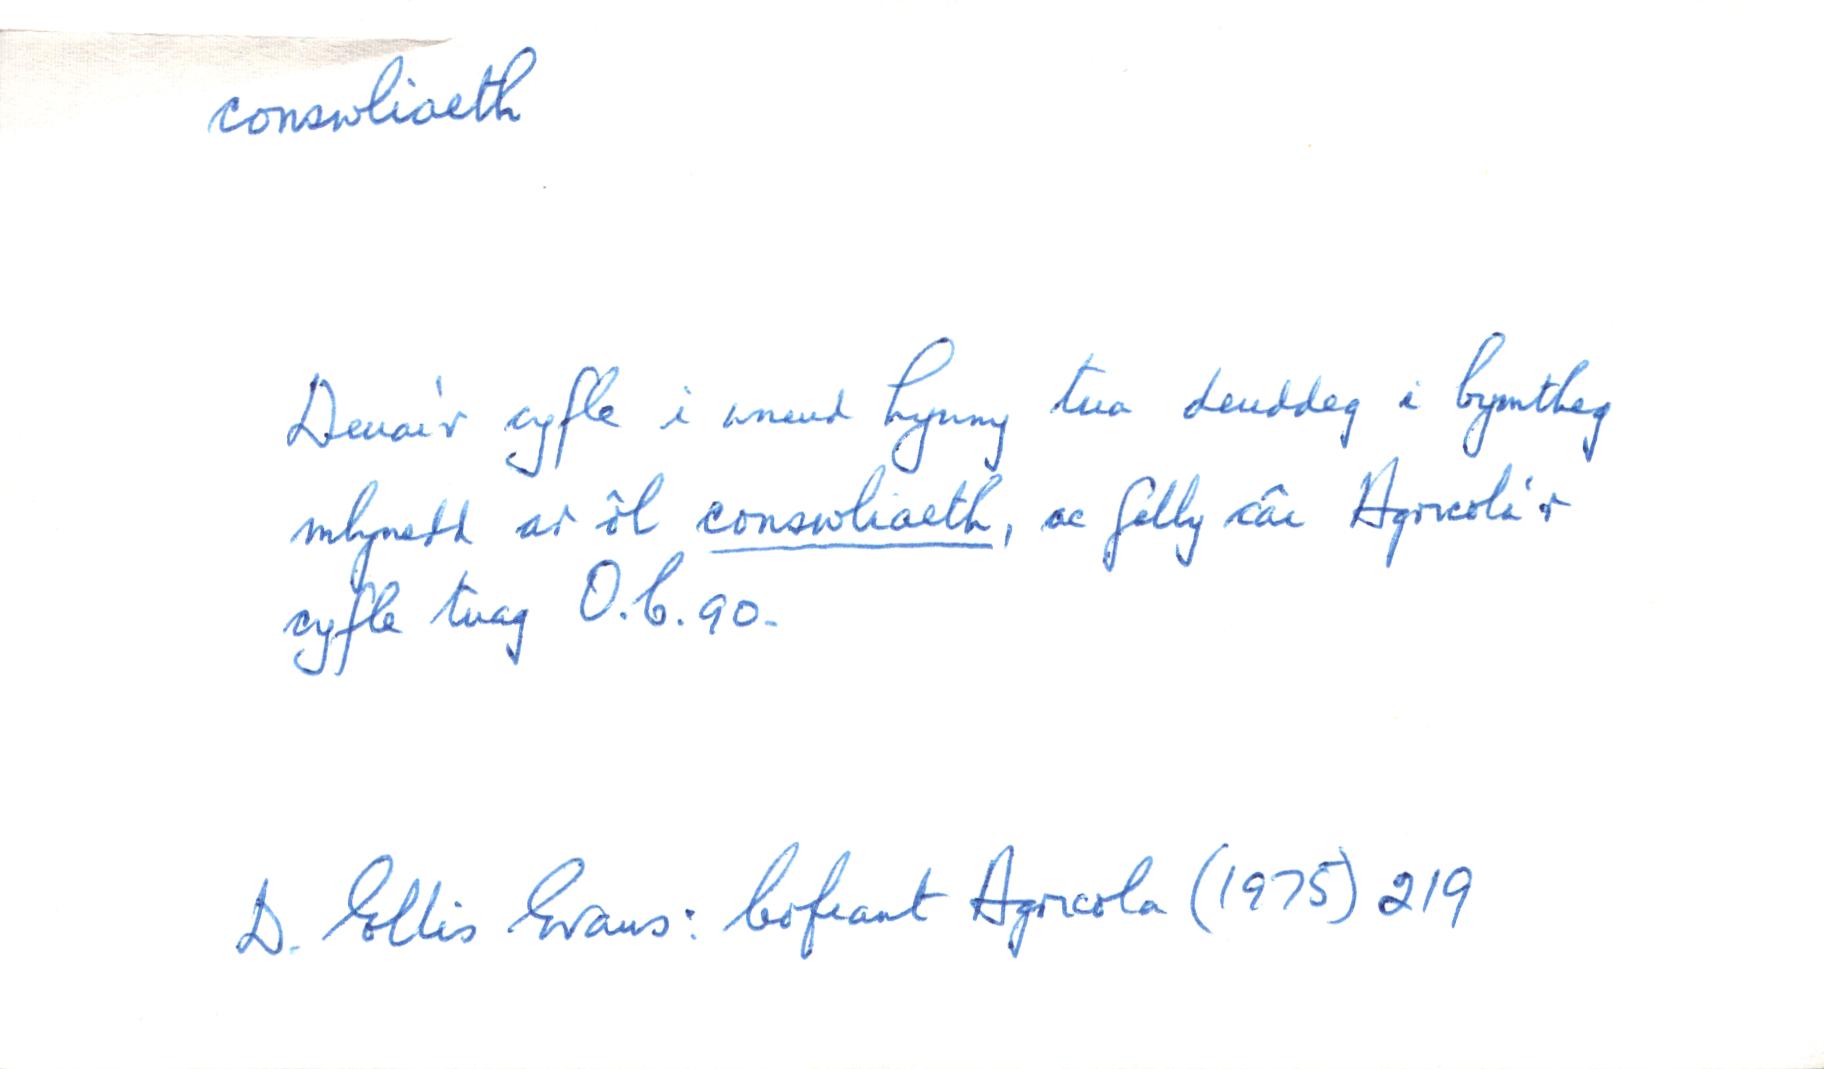 conswliaeth
Deuai'r cyfle i wneud hynny tua deuddeg i bymtheg
mlynedd ar ôl conswliaeth, ac felly câi Agricola'r
cyfle tuag O.C. 90.
D. Ellis Evans: Cofiant Agricola (1975) 219